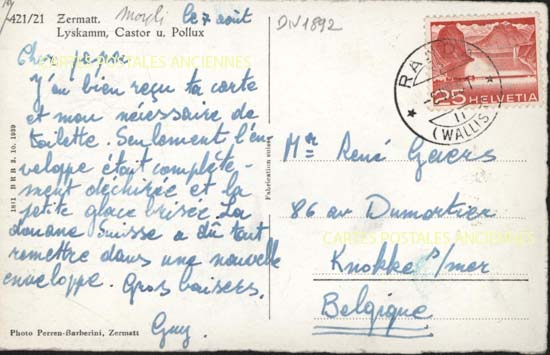 421/21 Zermatt.
Lyskamm, Castor u. Pollux
le 7 août
DIV 1892
Cher papa.
J'ai bien reçu ta carte
et mon nécessaire de
toilette. Seulement l'en-
veloppe était complète-
ment déchirée et la
petite glace brisée. La
douane Suisse a dû tout
remettre dans une nouvelle
enveloppe. Gros baisers.
Guy.
Photo Perren-Barberini, Zermatt
1811 B R B 3. 10. 1939
Fabrication suisse
25 HELVETIA
(WALLIS)
Mr René
86 av Dumortier
Knokke s/mer
Belgique
CARTES POSTALES ANCIENNES
CARTES POSTALES ANCIENNES